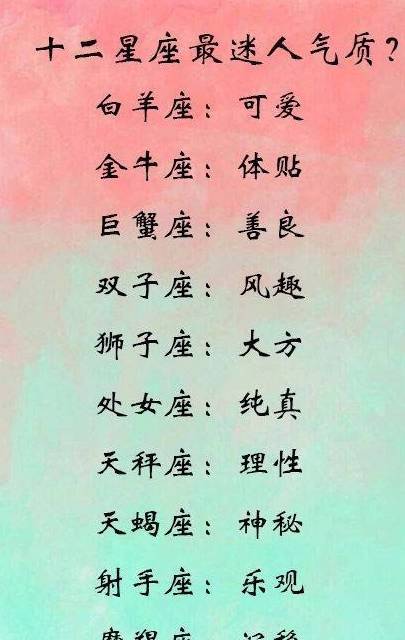 十二星座最迷人气质?
白羊座：可爱
金牛座：体贴
巨蟹座：善良
双子座：风趣
狮子座：大方
处女座：纯真
天秤座：理性
天蝎座：神秘
射手座：乐观